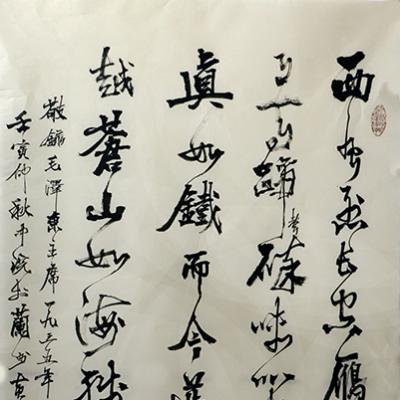 西风烈長空雁
月马蹄聲碎喇叭
真如鐵而今邁
越蒼山如海殘
敬錄毛澤東主席一九三五年
壬寅仲秋中浣於蘭州